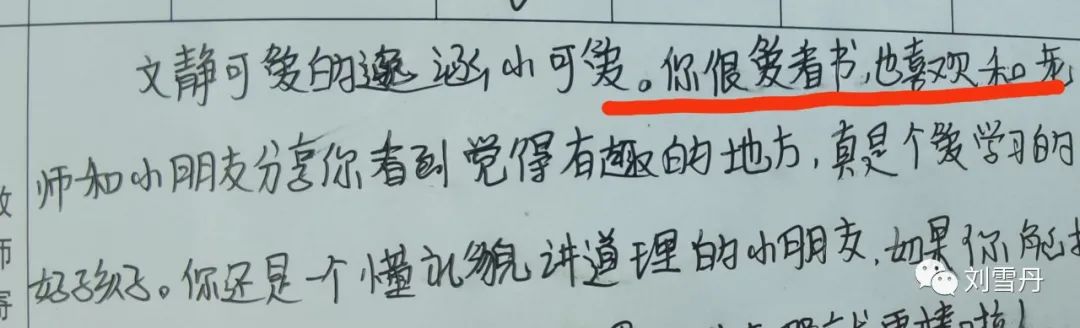 文静可爱的逸涵小可爱。你很爱看书,也喜欢和老
师和小朋友分享你看到觉得有趣的地方,真是个爱学习的
好孩子。你还是一个懂礼貌讲道理的小朋友,如果你能
教师寄
刘雪丹